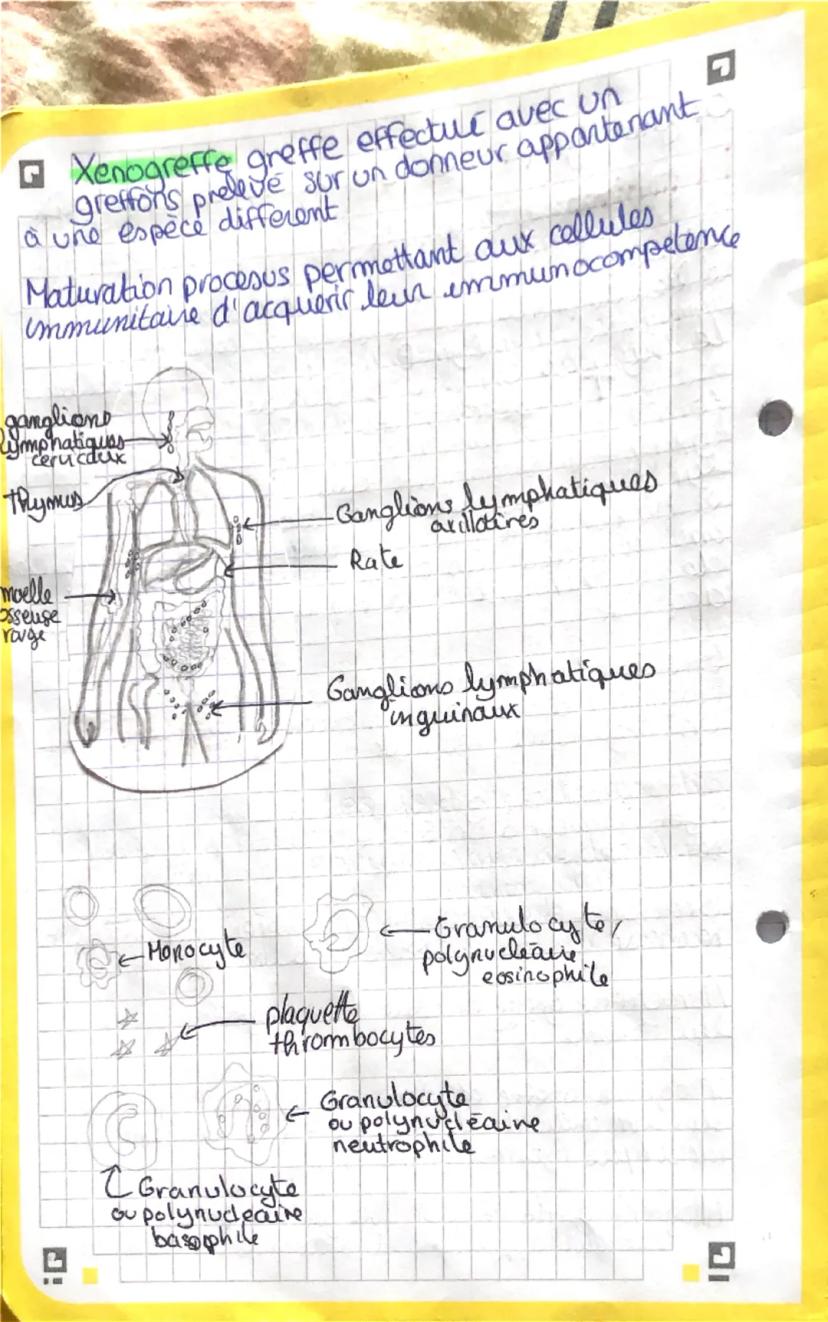 Xenogreffe greffe effectué avec un
greffons prelevé sur un donneur appartenant
à une espèce différent
Maturation procesus permettant aux cellules
immunitaire d'acquérir leur immunocompetence
ganglions
lymphatiques
cervicaux
thymus
Ganglions lymphatiques
axillaires
Rate
moelle
osseuse
rouge
Ganglions lymphatiques
inguinaux
Monocyte
Granulocyte/
polynucléaire
eosinophile
plaquette
thrombocytes
Granulocyte
ou polynucléaire
neutrophile
Granulocyte
ou polynucléaire
basophile